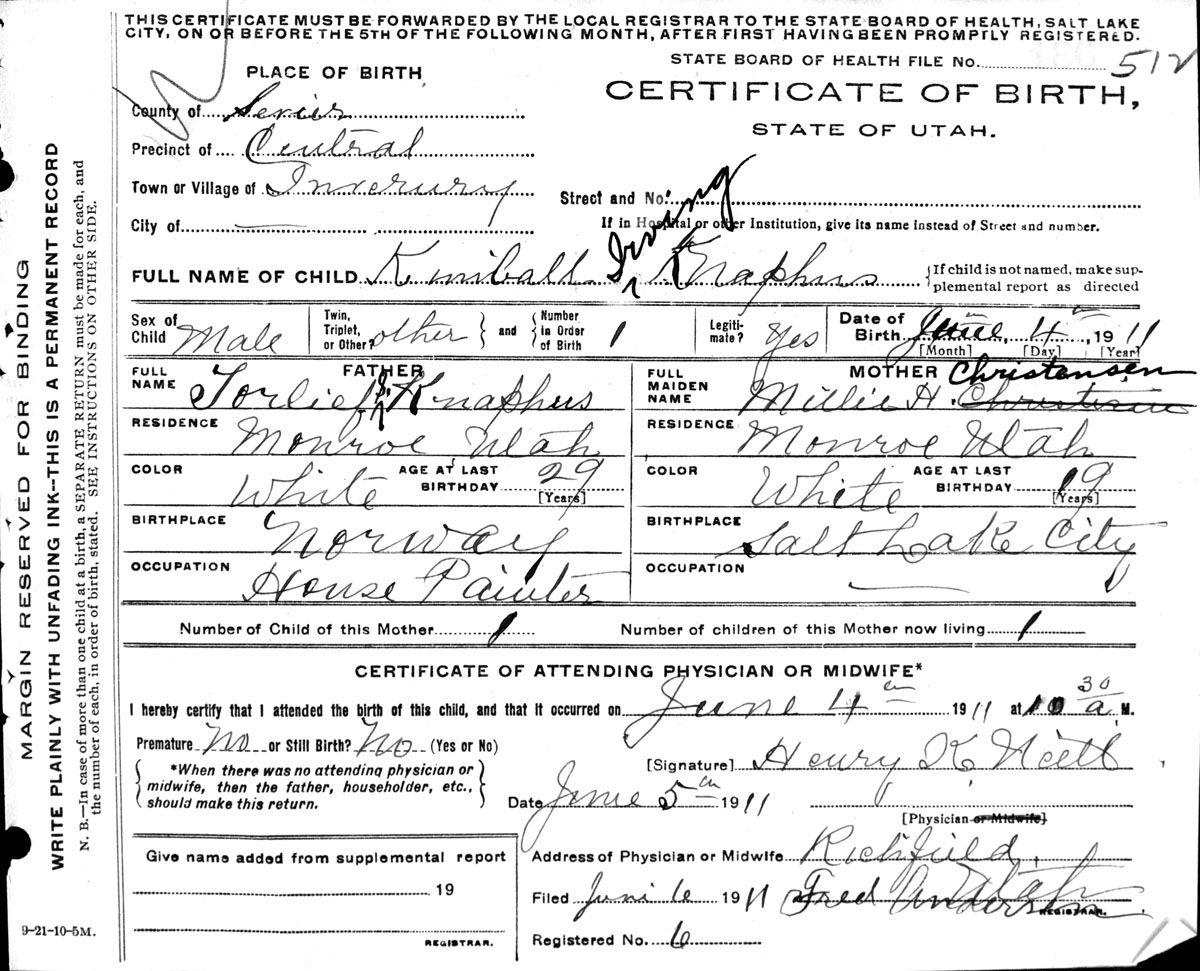 THIS CERTIFICATE MUST BE FORWARDED BY THE LOCAL REGISTRAR TO THE STATE BOARD OF HEALTH, SALT LAKE
CITY, ON OR BEFORE THE 5TH OF THE FOLLOWING MONTH, AFTER FIRST HAVING BEEN PROMPTLY REGISTERED.
STATE BOARD OF HEALTH FILE No. 512
PLACE OF BIRTH
CERTIFICATE OF BIRTH,
STATE OF UTAH.
County of Sevier
Precinct of Central
Town or Village of Inverury
Street and No.
City of —
If in Hospital or other Institution, give its name instead of Street and number.
FULL NAME OF CHILD Kimball Irving Knaphus
If child is not named, make supplemental report as directed
Sex of Child Male
Twin, Triplet, or Other? other and Number in Order of Birth 1
Legitimate? Yes
Date of Birth June 4th, 1911
[Month] [Day] [Year]
FATHER
FULL NAME Torlief S. Knaphus
RESIDENCE Monroe Utah
COLOR White AGE AT LAST BIRTHDAY 29 [Years]
BIRTHPLACE Norway
OCCUPATION House Painter
MOTHER
FULL MAIDEN NAME Millie H. Christensen
RESIDENCE Monroe Utah
COLOR White AGE AT LAST BIRTHDAY 19 [Years]
BIRTHPLACE Salt Lake City
OCCUPATION —
Number of Child of this Mother 1 Number of children of this Mother now living 1
CERTIFICATE OF ATTENDING PHYSICIAN OR MIDWIFE*
I hereby certify that I attended the birth of this child, and that it occurred on June 4th 1911 at 10 30 a M.
Premature No or Still Birth? No (Yes or No)
*When there was no attending physician or
midwife, then the father, householder, etc.,
should make this return.
[Signature] Henry K.
Date June 5th 1911
[Physician or Midwife]
Give name added from supplemental report
19
REGISTRAR.
Address of Physician or Midwife Richfield, Utah
Filed June 6 1911 Fred Anderson
REGISTRAR.
Registered No. 6
9-21-10-5M.
MARGIN RESERVED FOR BINDING
WRITE PLAINLY WITH UNFADING INK--THIS IS A PERMANENT RECORD
N. B.—In case of more than one child at a birth, a SEPARATE RETURN must be made for each, and
the number of each, in order of birth, stated. SEE INSTRUCTIONS ON OTHER SIDE.